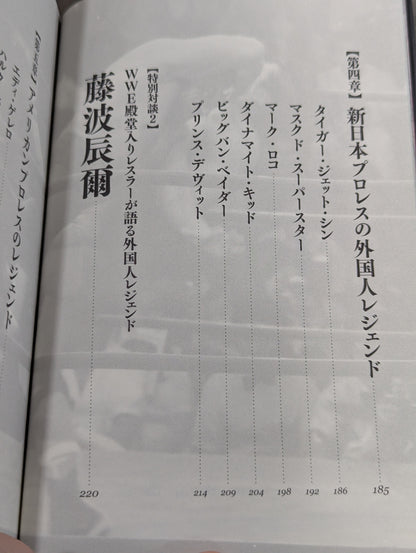 【第四章】新日本プロレスの外国人レジェンド 185
タイガー・ジェット・シン 186
マスクド・スーパースター 192
マーク・ロコ 198
ダイナマイト・キッド 204
ビッグバン・ベイダー 209
プリンス・デヴィット 214
【特別対談2】
WWE殿堂入りレスラーが語る外国人レジェンド
藤波辰爾 220
アメリカンプロレスのレジェンド
エディ・ゲレロ